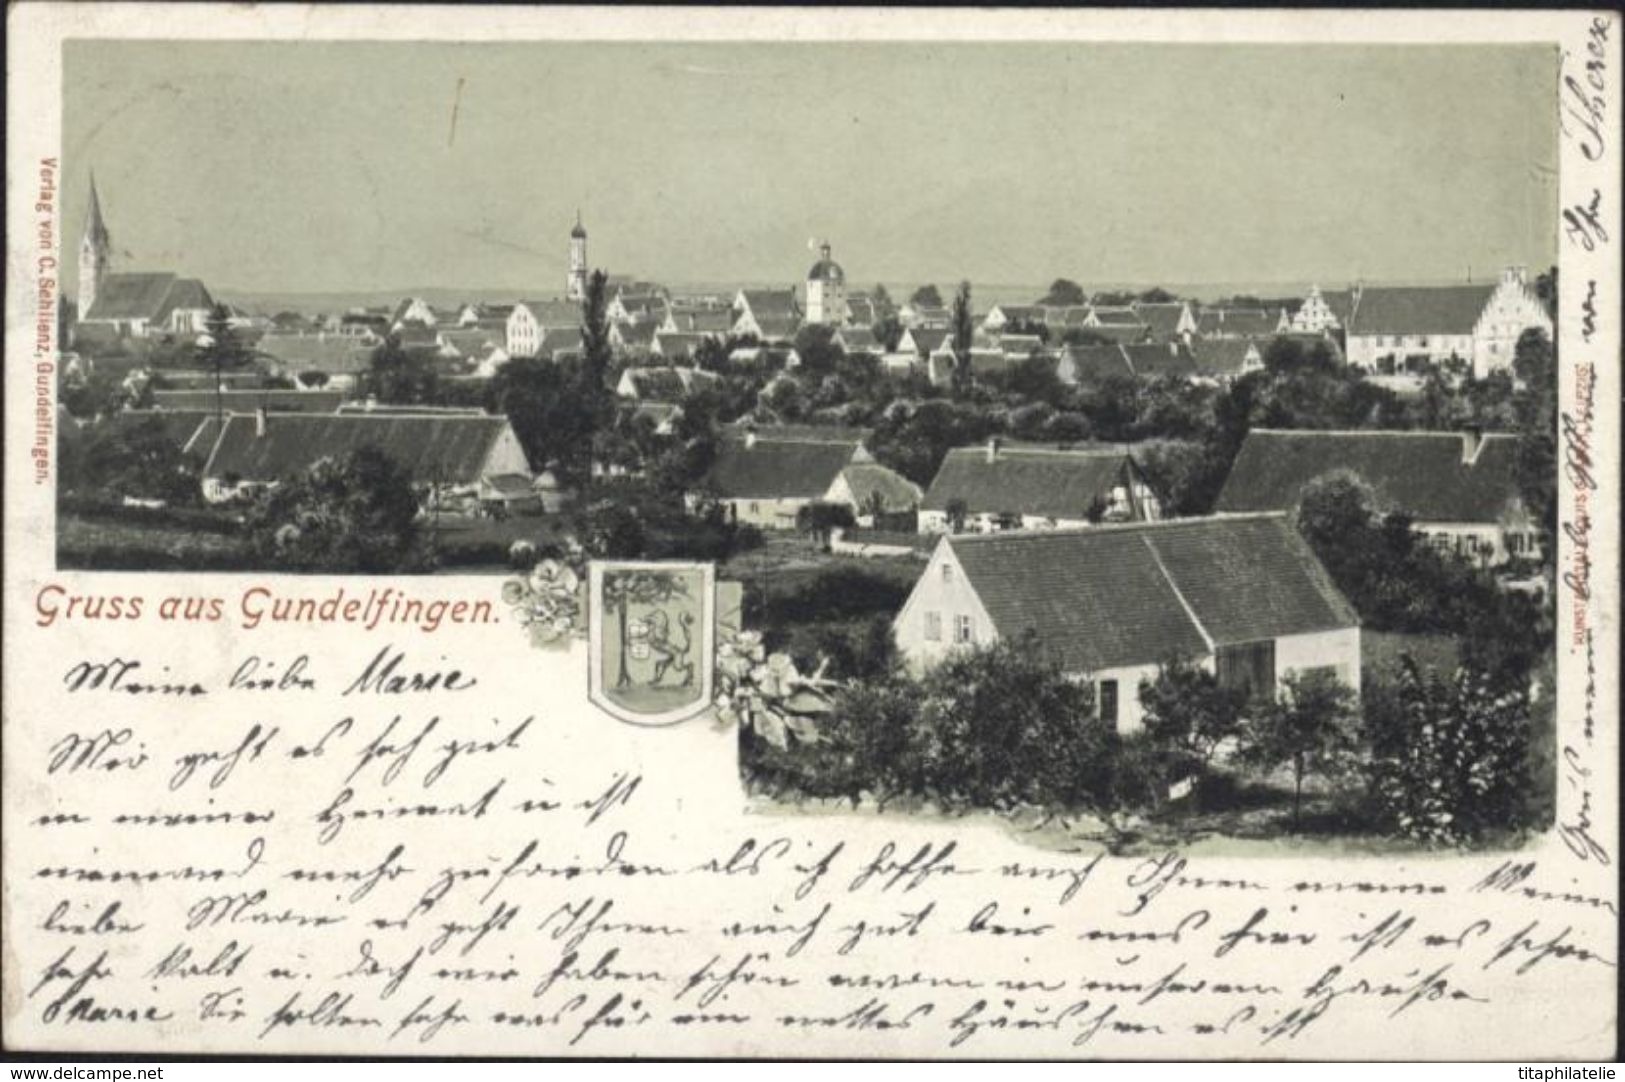 Verlag von C. Schlienz, Gundelfingen.
Gruss aus Gundelfingen.
Meine liebe Marie
Mir geht es sehr gut
in meiner Heimat u ist
niemand mehr zufrieden als ich hoffe auch Ihnen meine
liebe Marie es geht Ihnen auch gut bei uns hier ist es schon
sehr kalt u. doch wir haben schön warm in unserem Hauße
Marie Sie sollten sehn was für ein nettes Häuschen es ist
von Ihr Therese
delcampe.net
titaphilatelie